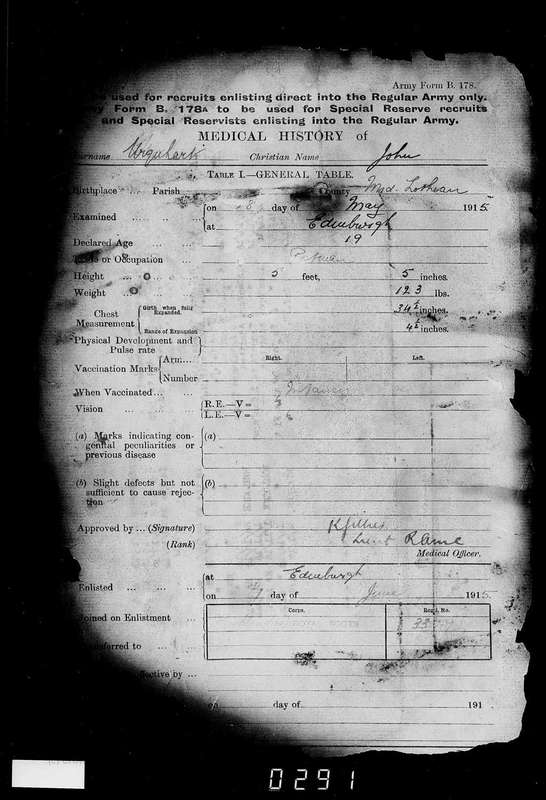 Army Form B. 178.
used for recruits enlisting direct into the Regular Army only.
Form B. 178A to be used for Special Reserve recruits
and Special Reservists enlisting into the Regular Army.
MEDICAL HISTORY of
Urquhart Christian Name John
TABLE I.—GENERAL TABLE.
Birthplace ... Parish County Mid. Lothian
Examined ... ... on 8 day of May 1915.
at Edinburgh
Declared Age ... 19
or Occupation ... Pitman
Height ... 5 feet, 5 inches
Weight ... 123 lbs.
Chest Measurement Girth when fully Expanded. 34½ inches.
Range of Expansion 4½ inches.
Physical Development and Pulse rate
Vaccination Marks Arm ... Right. Left.
Number
When Vaccinated ... Infancy
Vision ... ... R.E.—V=
L.E.—V=
(a) Marks indicating congenital peculiarities or previous disease (a)
(b) Slight defects but not sufficient to cause rejection (b)
Approved by ... (Signature)
(Rank) Lieut RAMC
Medical Officer.
Enlisted ... ... ... at Edinburgh
on day of June 1915.
Corps. Regtl. No.
Joined on Enlistment ...
to ...
by ...
on day of 191
0291